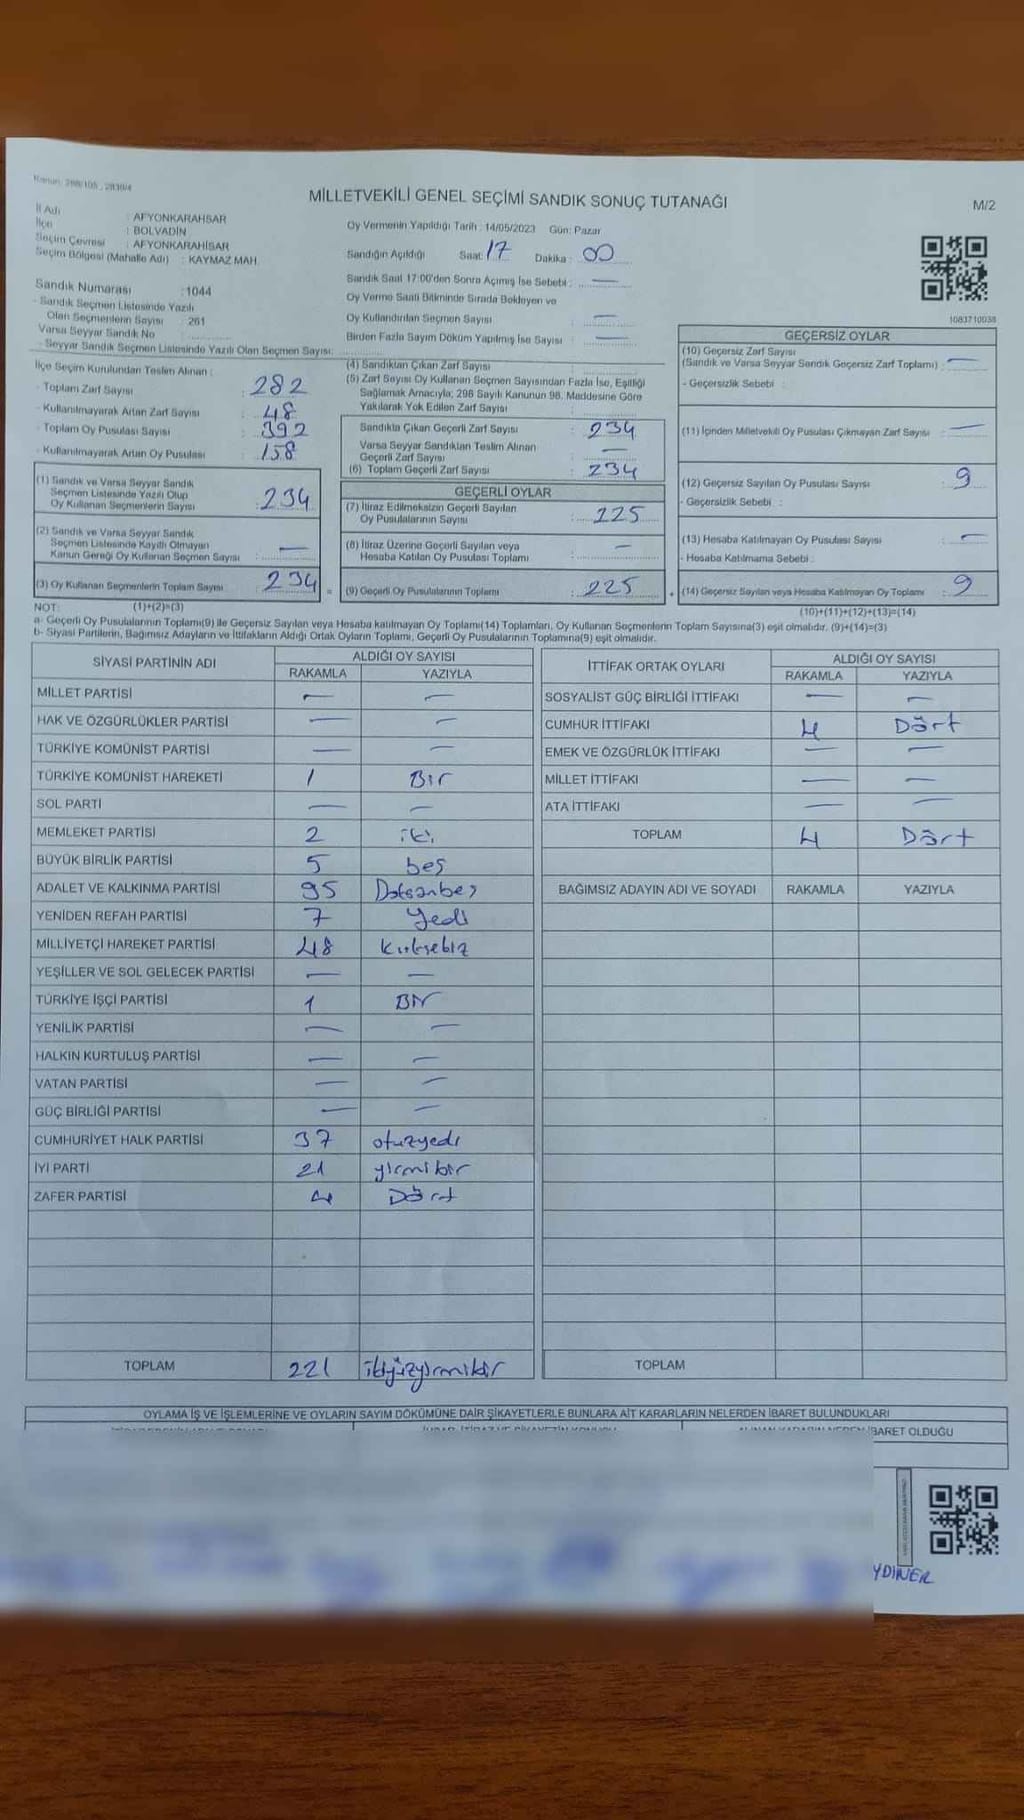 Kanun: 298/105 , 2839/4
MİLLETVEKİLİ GENEL SEÇİMİ SANDIK SONUÇ TUTANAĞI
M/2
İl Adı : AFYONKARAHİSAR
İlçe : BOLVADİN
Seçim Çevresi : AFYONKARAHİSAR
Seçim Bölgesi (Mahalle Adı) : KAYMAZ MAH.
Sandık Numarası : 1044
- Sandık Seçmen Listesinde Yazılı
Olan Seçmenlerin Sayısı : 261
Varsa Seyyar Sandık No :
- Seyyar Sandık Seçmen Listesinde Yazılı Olan Seçmen Sayısı:
İlçe Seçim Kurulundan Teslim Alınan :
- Toplam Zarf Sayısı : 282
- Kullanılmayarak Artan Zarf Sayısı : 48
- Toplam Oy Pusulası Sayısı : 392
- Kullanılmayarak Artan Oy Pusulası : 158
(1) Sandık ve Varsa Seyyar Sandık
Seçmen Listesinde Yazılı Olup
Oy Kullanan Seçmenlerin Sayısı : 234
(2) Sandık ve Varsa Seyyar Sandık
Seçmen Listesinde Kayıtlı Olmayan
Kanun Gereği Oy Kullanan Seçmen Sayısı : —
(3) Oy Kullanan Seçmenlerin Toplam Sayısı : 234
Oy Vermenin Yapıldığı Tarih : 14/05/2023 Gün: Pazar
Sandığın Açıldığı Saat: 17 Dakika : 00
Sandık Saat 17:00'den Sonra Açılmış İse Sebebi : —
Oy Verme Saati Bitiminde Sırada Bekleyen ve
Oy Kullandırılan Seçmen Sayısı : —
Birden Fazla Sayım Döküm Yapılmış İse Sayısı : —
(4) Sandıktan Çıkan Zarf Sayısı :
(5) Zarf Sayısı Oy Kullanan Seçmen Sayısından Fazla İse, Eşitliği
Sağlamak Amacıyla; 298 Sayılı Kanunun 98. Maddesine Göre
Yakılarak Yok Edilen Zarf Sayısı :
Sandıkta Çıkan Geçerli Zarf Sayısı : 234
Varsa Seyyar Sandıktan Teslim Alınan
Geçerli Zarf Sayısı : —
(6) Toplam Geçerli Zarf Sayısı : 234
GEÇERLİ OYLAR
(7) İtiraz Edilmeksizin Geçerli Sayılan
Oy Pusulalarının Sayısı : 225
(8) İtiraz Üzerine Geçerli Sayılan veya
Hesaba Katılan Oy Pusulası Toplamı : —
(9) Geçerli Oy Pusulalarının Toplamı : 225
1083710038
GEÇERSİZ OYLAR
(10) Geçersiz Zarf Sayısı
(Sandık ve Varsa Seyyar Sandık Geçersiz Zarf Toplamı) : —
- Geçersizlik Sebebi :
(11) İçinden Milletvekili Oy Pusulası Çıkmayan Zarf Sayısı : —
(12) Geçersiz Sayılan Oy Pusulası Sayısı : 9
- Geçersizlik Sebebi :
(13) Hesaba Katılmayan Oy Pusulası Sayısı : —
- Hesaba Katılmama Sebebi :
(14) Geçersiz Sayılan veya Hesaba Katılmayan Oy Toplamı : 9
NOT: (1)+(2)=(3) (10)+(11)+(12)+(13)=(14)
a- Geçerli Oy Pusulalarının Toplamı(9) ile Geçersiz Sayılan veya Hesaba katılmayan Oy Toplamı(14) Toplamları, Oy Kullanan Seçmenlerin Toplam Sayısına(3) eşit olmalıdır. (9)+(14)=(3)
b- Siyasi Partilerin, Bağımsız Adayların ve İttifakların Aldığı Ortak Oyların Toplamı, Geçerli Oy Pusulalarının Toplamına(9) eşit olmalıdır.
SİYASİ PARTİNİN ADI ALDIĞI OY SAYISI
RAKAMLA YAZIYLA
MİLLET PARTİSİ — —
HAK VE ÖZGÜRLÜKLER PARTİSİ — —
TÜRKİYE KOMÜNİST PARTİSİ — —
TÜRKİYE KOMÜNİST HAREKETİ 1 Bir
SOL PARTİ — —
MEMLEKET PARTİSİ 2 iki
BÜYÜK BİRLİK PARTİSİ 5 beş
ADALET VE KALKINMA PARTİSİ 95 Doksanbeş
YENİDEN REFAH PARTİSİ 7 Yedi
MİLLİYETÇİ HAREKET PARTİSİ 48 kırksekiz
YEŞİLLER VE SOL GELECEK PARTİSİ — —
TÜRKİYE İŞÇİ PARTİSİ 1 Bir
YENİLİK PARTİSİ — —
HALKIN KURTULUŞ PARTİSİ — —
VATAN PARTİSİ — —
GÜÇ BİRLİĞİ PARTİSİ — —
CUMHURİYET HALK PARTİSİ 37 otuzyedi
İYİ PARTİ 21 yirmibir
ZAFER PARTİSİ 4 Dört
TOPLAM 221 ikiyüzyirmibir
İTTİFAK ORTAK OYLARI ALDIĞI OY SAYISI
RAKAMLA YAZIYLA
SOSYALİST GÜÇ BİRLİĞİ İTTİFAKI — —
CUMHUR İTTİFAKI 4 Dört
EMEK VE ÖZGÜRLÜK İTTİFAKI — —
MİLLET İTTİFAKI — —
ATA İTTİFAKI — —
TOPLAM 4 Dört
BAĞIMSIZ ADAYIN ADI VE SOYADI RAKAMLA YAZIYLA
TOPLAM
OYLAMA İŞ VE İŞLEMLERİNE VE OYLARIN SAYIM DÖKÜMÜNE DAİR ŞİKAYETLERLE BUNLARA AİT KARARLARIN NELERDEN İBARET BULUNDUKLARI
İBARET OLDUĞU
YDINER